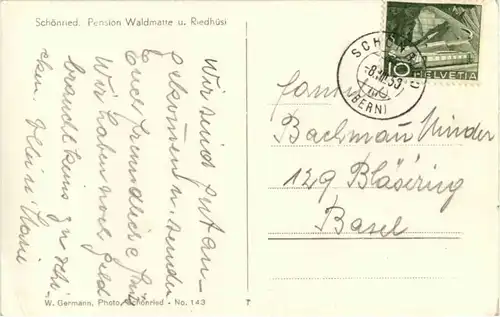 Schönried. Pension Waldmatte u. Riedhüsi
Wir sind gut an-
gekommen u. senden
Euch freundliche Grüsse
Wir haben noch Geld
braucht keins zu schi-
cken. Heini u. Marie
W. Germann, Photo, Schönried - No. 143
7
SCHÖNRIED
(BERN)
10
HELVETIA
Bachmann
129 Bläsiring
Basel